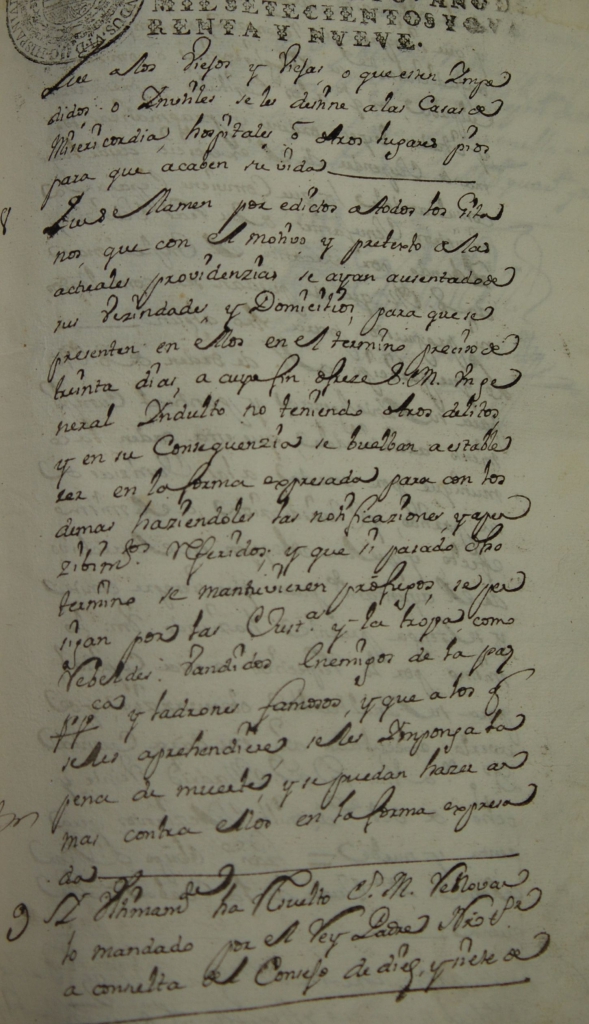 MIL SETECIENTOS Y QVA
RENTA Y NVEVE.
Que a los Viejos y Viejas, o que esten Impe
didos o Inutiles se les destine a las Casas de
Misericordia hospitales ô otros lugares pios
para que acaben su vida
8 Que se llamen por edictos a todos los Gita
nos, que con el motivo y pretexto a las
actuales providenzias se ayan ausentado de
sus Vezindades y Domicilios para que se
presenten en ellos en el termino preciso de
treinta dias, a cuyo fin ofreze S. M. Yn ge
neral Yndulto no teniendo otros delitos,
y en su Consequenzia se buelban a estable
zer en la forma expresada para con los
demas haziendoles las notificaziones y aper
zibim.tos referidos; y que si pasado dho
termino se mantuvieren profugos, se per
sigan por las Just.as y la tropa como
Rebeldes Vandidos Enemigos de la paz
pp.ca y ladrones famosos, y que a los q
se les aprehendiere, se les Imponga la
pena de muerte, y se puedan hazer ar
mas contra ellos en la forma expresa
da
9 Ultimam.te ha Resuelto S. M. Rebovar
lo mandado por el Rey Padre Nro S.r
a consulta del Consejo de diez, y siete de